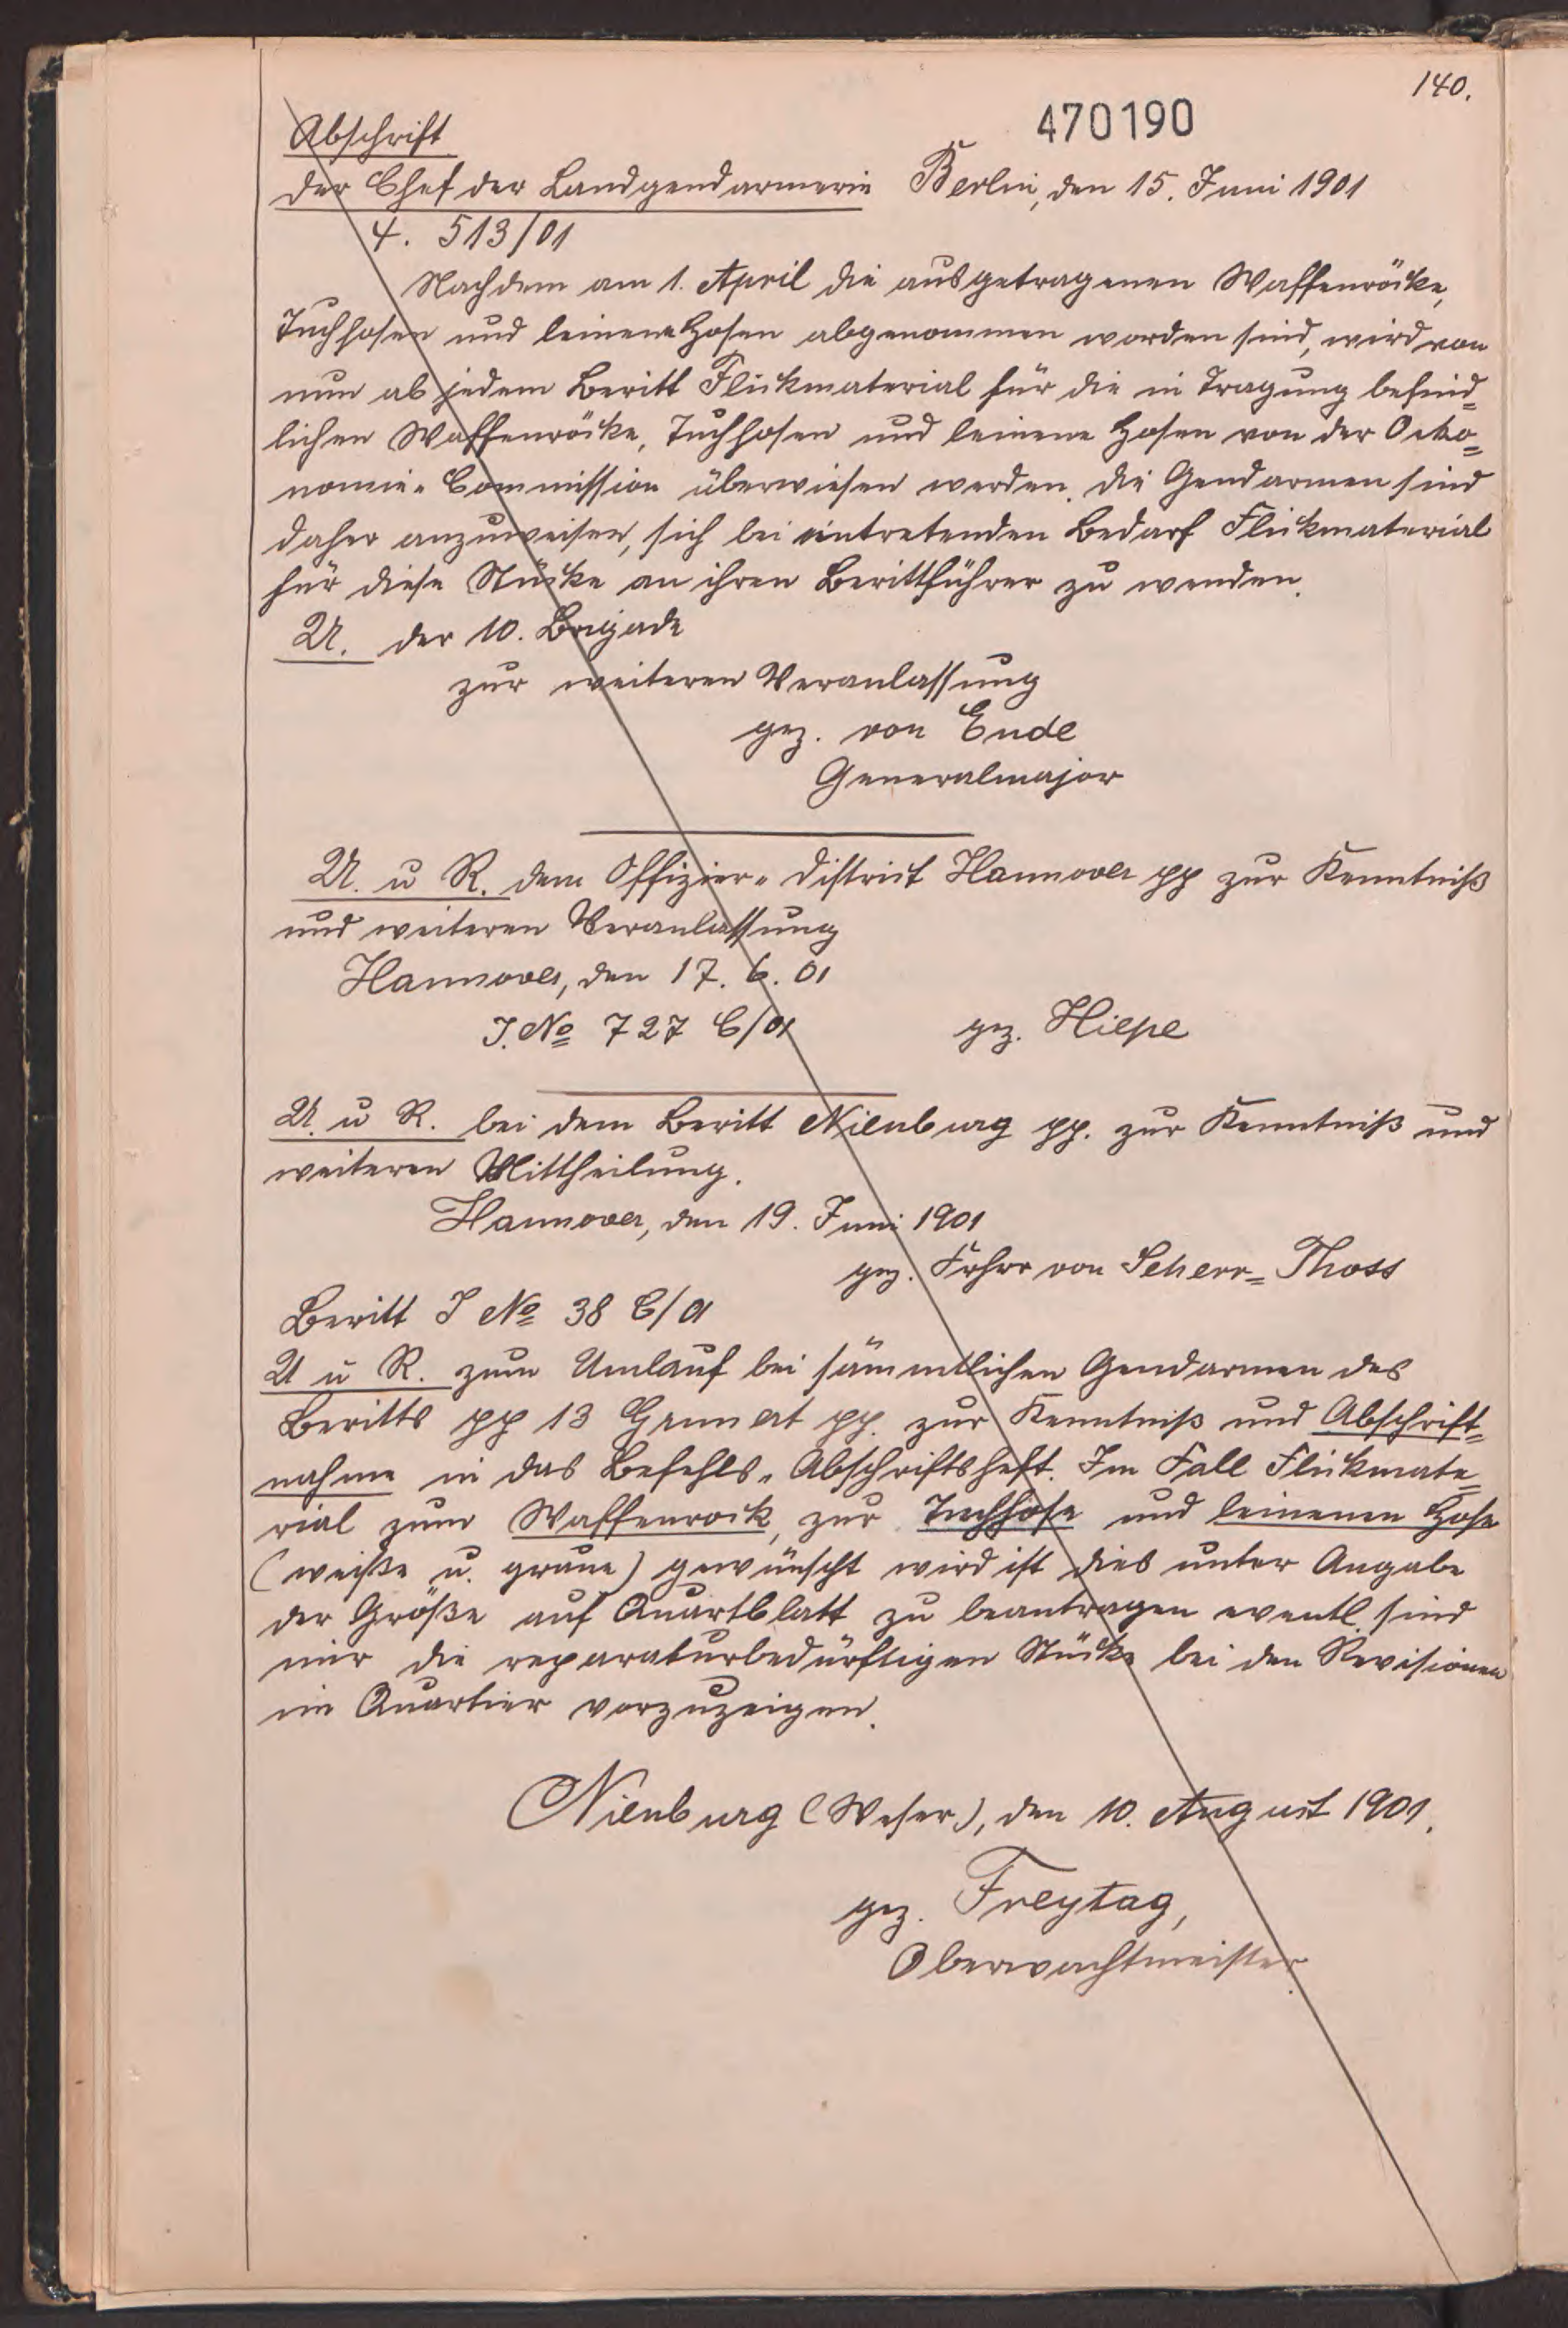 140.
470190
Abschrift
Der Chef der Landgendarmerie Berlin, den 15. Juni 1901
4. 513/01
Nachdem am 1. April die ausgetragenen Waffenröcke,
Tuchhosen und leinene Hosen abgenommen worden sind, wird von
nun ab jedem Beritt Flickmaterial für die in Tragung befind=
lichen Waffenröcke, Tuchhosen und leinene Hosen von der Oeko=
nomie-Commission überwiesen werden. Die Gendarmen sind
daher anzuweisen, sich bei eintretenden Bedarf Flickmaterial
für diese Stücke an ihren Berittführer zu wenden.
U. der 10. Brigade
zur weiteren Veranlassung
gez. von Ende
Generalmajor
U. u R. dem Offizier-District Hannover pp zur Kenntniß
und weiteren Veranlassung
Hannover, den 17. 6. 01
J. No 727 C/01 gez. Hiepe
U. u R. bei dem Beritt Nienburg pp. zur Kenntniß und
weiteren Mittheilung.
Hannover, den 19. Juni 1901
gez. Frhr von Scherr=Thoss
Beritt J No 38 C/01
U u R. zum Umlauf bei sämmtlichen Gendarmen des
Beritts pp 13 pp. zur Kenntniß und Abschrift=
nahme in das Befehls-Abschriftsheft. Im Fall Flickmate=
rial zum Waffenrock, zur Tuchhose und leinenen Hose
(weiße u. graue) gewünscht wird ist dies unter Angabe
der Größe auf Quartblatt zu beantragen eventl. sind
mir die reparaturbedürftigen Stücke bei den Revisionen
im Quartier vorzuzeigen.
Nienburg (Weser), den 10. August 1901.
gez. Freytag,
Oberwachtmeister.